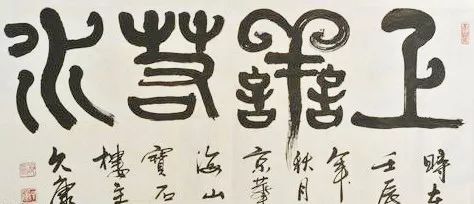 上善若水
時在
壬辰
年
秋月
京華
海山
寶石
樓主
久